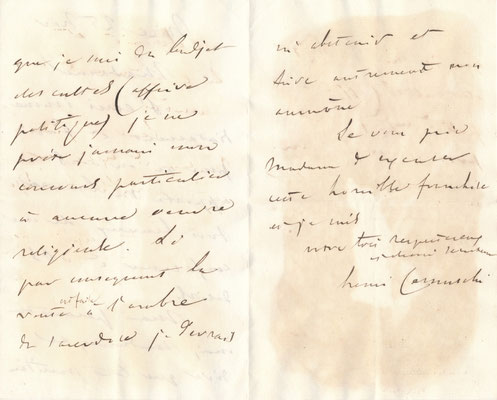 que je suis du budget
des cultes (affaire
politique) je ne
prête jamais mon
concours particulier
à aucune œuvre
religieuse. Si
par conséquent la
vente à l'ombre
du sacerdoce je devrais
m'abstenir et
faire autrement mon
aumône
Je vous prie
Madame d'excuser
cette humble franchise
et je suis
votre très respectueux
et dévoué serviteur
Henri Cernuschi